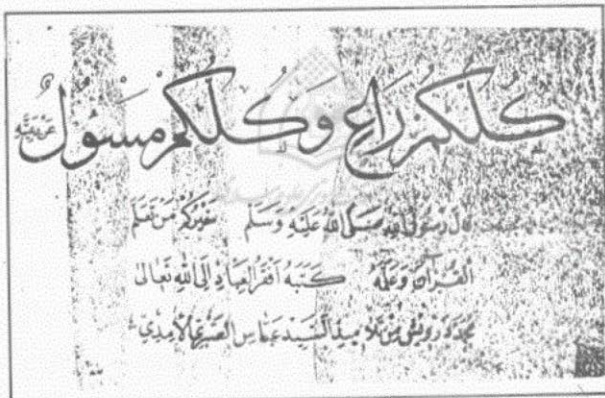 كُلُّكُمْ رَاعٍ وَكُلُّكُمْ مَسْؤُلٌ عَنْ رَعِيَّتِهِ
قَالَ رَسُولُ اللهِ صَلَّى اللهُ عَلَيْهِ وَسَلَّمَ خَيْرُكُمْ مَنْ تَعَلَّمَ
الْقُرْآنَ وَعَلَّمَهُ كَتَبَهُ أَفْقَرُ الْعِبَادِ إِلَى اللهِ تَعَالَى
مُحَمَّد دَرْوِيش مِنْ تَلَامِيذِ السَّيِّد عَبَّاس